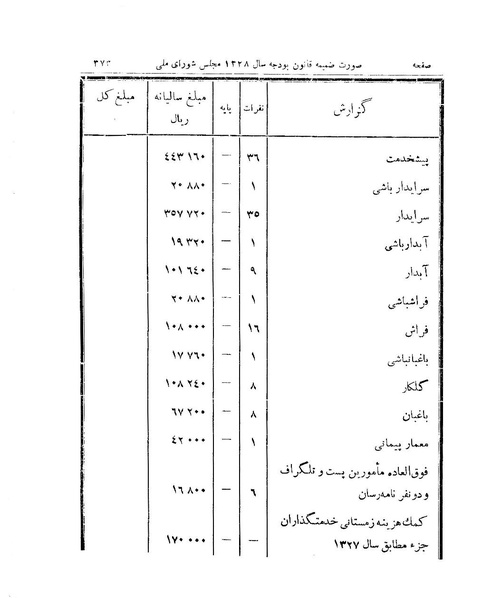 صفحه صورت ضمیمه قانون بودجه سال ۱۳۲۸ مجلس شورای ملی ۳۷۳
گزارش نفرات پایه مبلغ سالیانه ریال مبلغ کل
پیشخدمت ۳۶ — ۴۴۳ ۱۶۰
سرایدار باشی ۱ — ۲۰ ۸۸۰
سرایدار ۳۵ — ۳۵۷ ۷۲۰
آبدارباشی ۱ — ۱۹ ۳۲۰
آبدار ۹ — ۱۰۱ ۶۴۰
فراشباشی ۱ — ۲۰ ۸۸۰
فراش ۱۶ — ۱۰۸ ۰۰۰
باغبانباشی ۱ — ۱۷ ۷۶۰
گلکار ۸ — ۱۰۸ ۲۴۰
باغبان ۸ — ۶۷ ۲۰۰
معمار پیمانی ۱ — ۴۲ ۰۰۰
فوق‌العاده مأمورین پست و تلگراف
و دو نفر نامه‌رسان ۶ — ۱۶ ۸۰۰
کمك هزینه زمستانی خدمتگذاران
جزء مطابق سال ۱۳۲۷ — — ۱۷۰ ۰۰۰